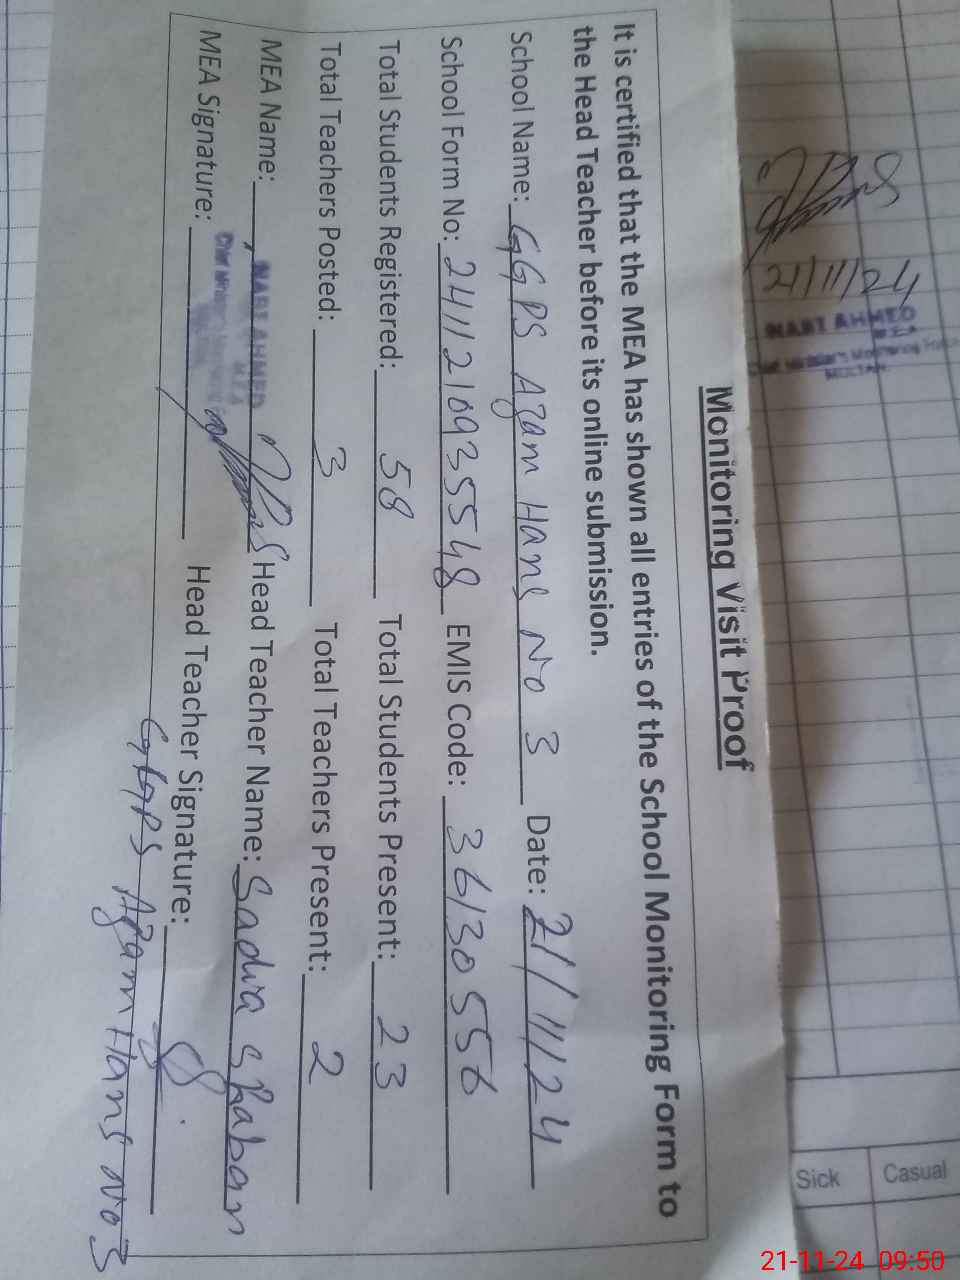 21/11/24
NABI AHMED
M E A
Chief Minister's Monitoring Force
MULTAN
Monitoring Visit Proof
It is certified that the MEA has shown all entries of the School Monitoring Form to
the Head Teacher before its online submission.
School Name: GGPS Azam Hans No 3 Date: 21/11/24
School Form No: 2411210935548 EMIS Code: 36130556
Total Students Registered: 58 Total Students Present: 23
Total Teachers Posted: 3 Total Teachers Present: 2
MEA Name: NABI AHMED Head Teacher Name: Sadia Shaban
M E A
Chief Minister's Monitoring
MEA Signature: Head Teacher Signature:
GGPS Azam Hans No 3
Sick Casual
21-11-24 09:50